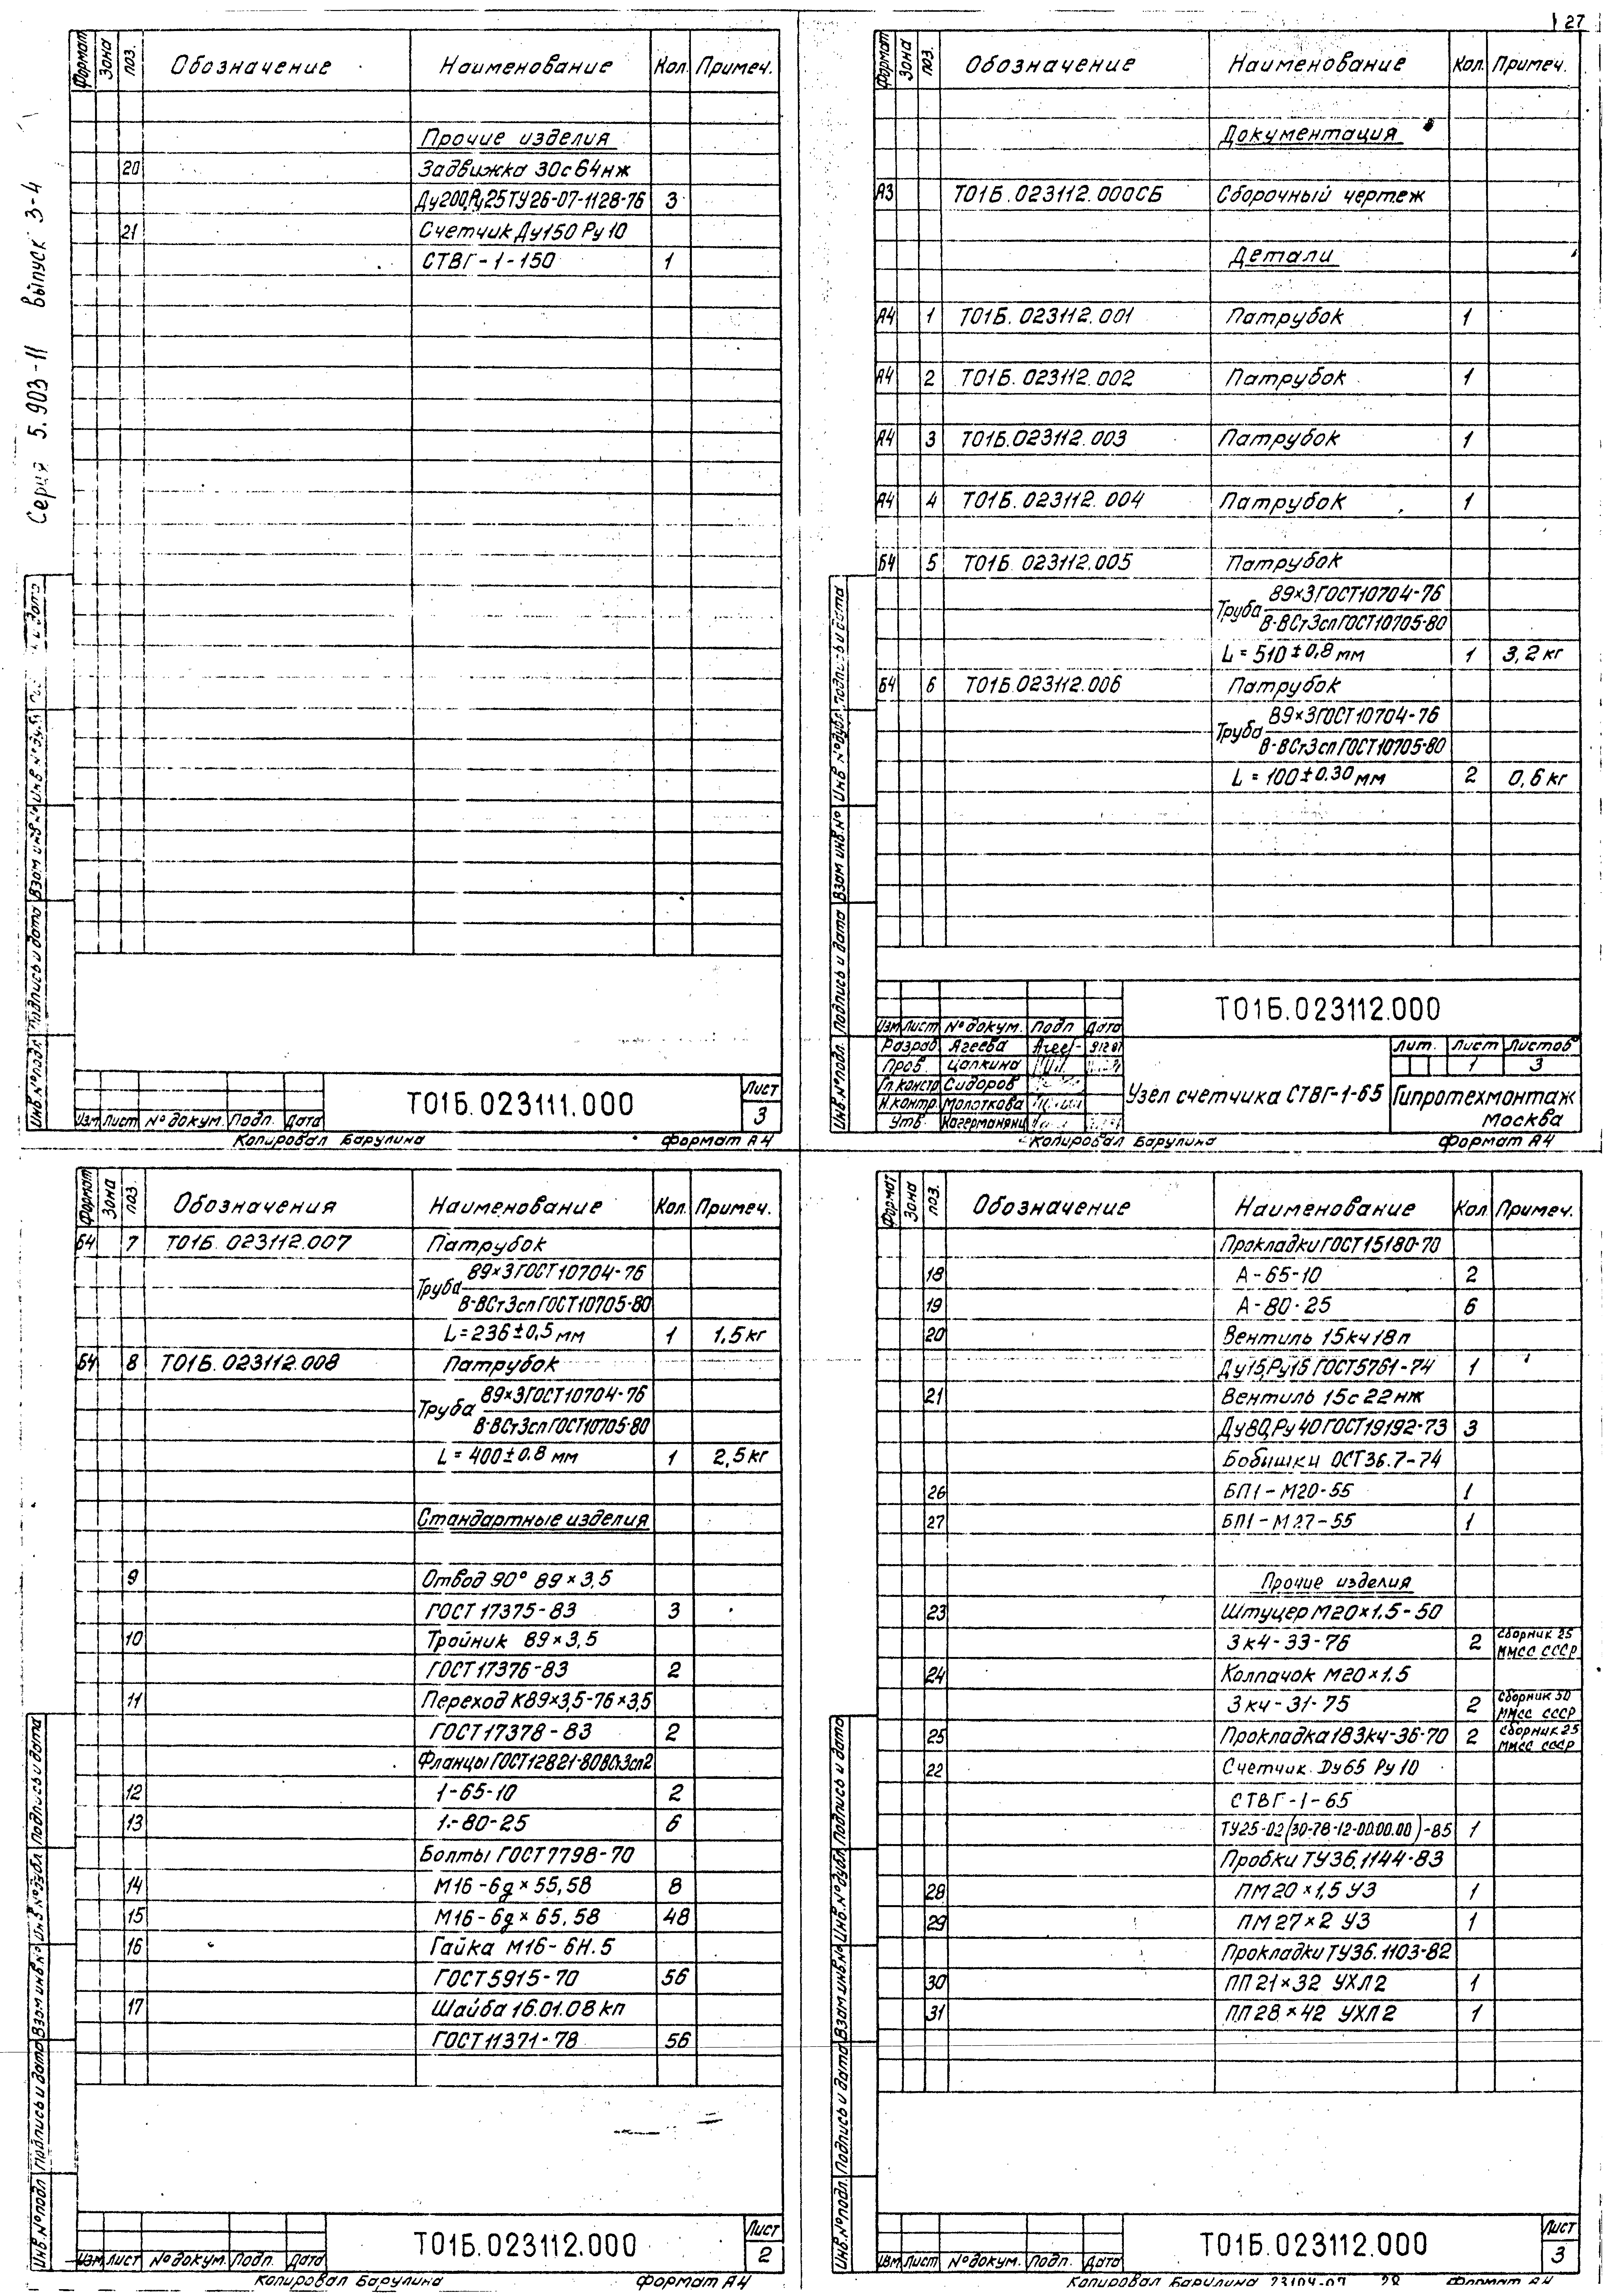 27
Серия 5.903-11 выпуск 3-4
Формат Зона Поз. Обозначение Наименование Кол. Примеч.
Прочие изделия
20 Задвижка 30с64нж
Ду200,Ру25ТУ26-07-1128-76 3
21 Счетчик Ду150 Ру10
СТВГ-1-150 1
Инв.№подл. Подпись и дата Взам инв.№ Инв.№дубл.
Изм Лист №докум. Подп. Дата
Т01Б.023111.000
Лист
3
Копировал Барулина Формат А4
Формат Зона Поз. Обозначение Наименование Кол. Примеч.
Документация
А3 Т01Б.023112.000СБ Сборочный чертеж
Детали
А4 1 Т01Б.023112.001 Патрубок 1
А4 2 Т01Б.023112.002 Патрубок 1
А4 3 Т01Б.023112.003 Патрубок 1
А4 4 Т01Б.023112.004 Патрубок 1
Б4 5 Т01Б.023112.005 Патрубок
89×3ГОСТ10704-76
Труба
В-ВСт3спГОСТ10705-80
L = 510±0,8 мм 1 3,2 кг
Б4 6 Т01Б.023112.006 Патрубок
89×3ГОСТ10704-76
Труба
В-ВСт3спГОСТ10705-80
L = 100±0.30 мм 2 0,6 кг
Инв.№подл. Подпись и дата Взам инв.№ Инв №дубл. Подпись и дата
Т01Б.023112.000
Изм Лист №докум. Подп Дата
Разраб Ягеева
Пров. Цапкина
Гл.констр Сидоров
Н.контр. Молоткова
Утв.
Узел счетчика СТВГ-1-65
Лит. Лист Листов
1 3
Гипротехмонтаж
Москва
Копировал Барулина Формат А4
Формат Зона Поз. Обозначения Наименование Кол. Примеч.
Б4 7 Т01Б.023112.007 Патрубок
89×3ГОСТ10704-76
Труба
В-ВСт3спГОСТ10705-80
L=236±0,5 мм 1 1,5кг
Б4 8 Т01Б.023112.008 Патрубок
89×3ГОСТ10704-76
Труба
В-ВСт3спГОСТ10705-80
L = 400±0.8 мм 1 2,5кг
Стандартные изделия
9 Отвод 90° 89×3,5
ГОСТ 17375-83 3
10 Тройник 89×3,5
ГОСТ17376-83 2
11 Переход К89×3,5-76×3,5
ГОСТ17378-83 2
Фланцы ГОСТ12821-80ВСт3сп2
12 1-65-10 2
13 1-80-25 6
Болты ГОСТ7798-70
14 М16-6g×55,58 8
15 М16-6g×65,58 48
16 Гайка М16-6Н.5
ГОСТ5915-70 56
17 Шайба 16.01.08кп
ГОСТ11371-78 56
Инв.№подл Подпись и дата Взам инв.№ Инв.№дубл Подпись и дата
Изм Лист №докум. Подп. Дата
Т01Б.023112.000
Лист
2
Копировал Барулина Формат А4
Формат Зона Поз. Обозначение Наименование Кол Примеч.
Прокладки ГОСТ15180-70
18 А-65-10 2
19 А-80-25 6
20 Вентиль 15кч18п
Ду15,Ру16 ГОСТ5761-74 1
21 Вентиль 15с22нж
Ду80,Ру40ГОСТ19192-73 3
Бобышки ОСТ36.7-74
26 БП1-М20-55 1
27 БП1-М27-55 1
Прочие изделия
23 Штуцер М20×1.5-50
3к4-33-76 2 сборник 25 ММСС СССР
24 Колпачок М20×1.5
3к4-31-75 2 сборник 50 ММСС СССР
25 Прокладка183к4-36-70 2 сборник25 ММСС СССР
22 Счетчик Ду65 Ру10
СТВГ-1-65
ТУ25-02(30-78-12-00.00.00)-85 1
Пробки ТУ36.1144-83
28 ПМ20×1,5 У3 1
29 ПМ27×2 У3 1
Прокладки ТУ36.1103-82
30 ПП21×32 УХЛ2 1
31 ПП28×42 УХЛ2 1
Инв.№подл. Подпись и дата Взам инв.№ Инв.№дубл Подпись и дата
Изм Лист №докум. Подп. Дата
Т01Б.023112.000
Лист
3
Копировал Барулина 23104-07 28 Формат А4